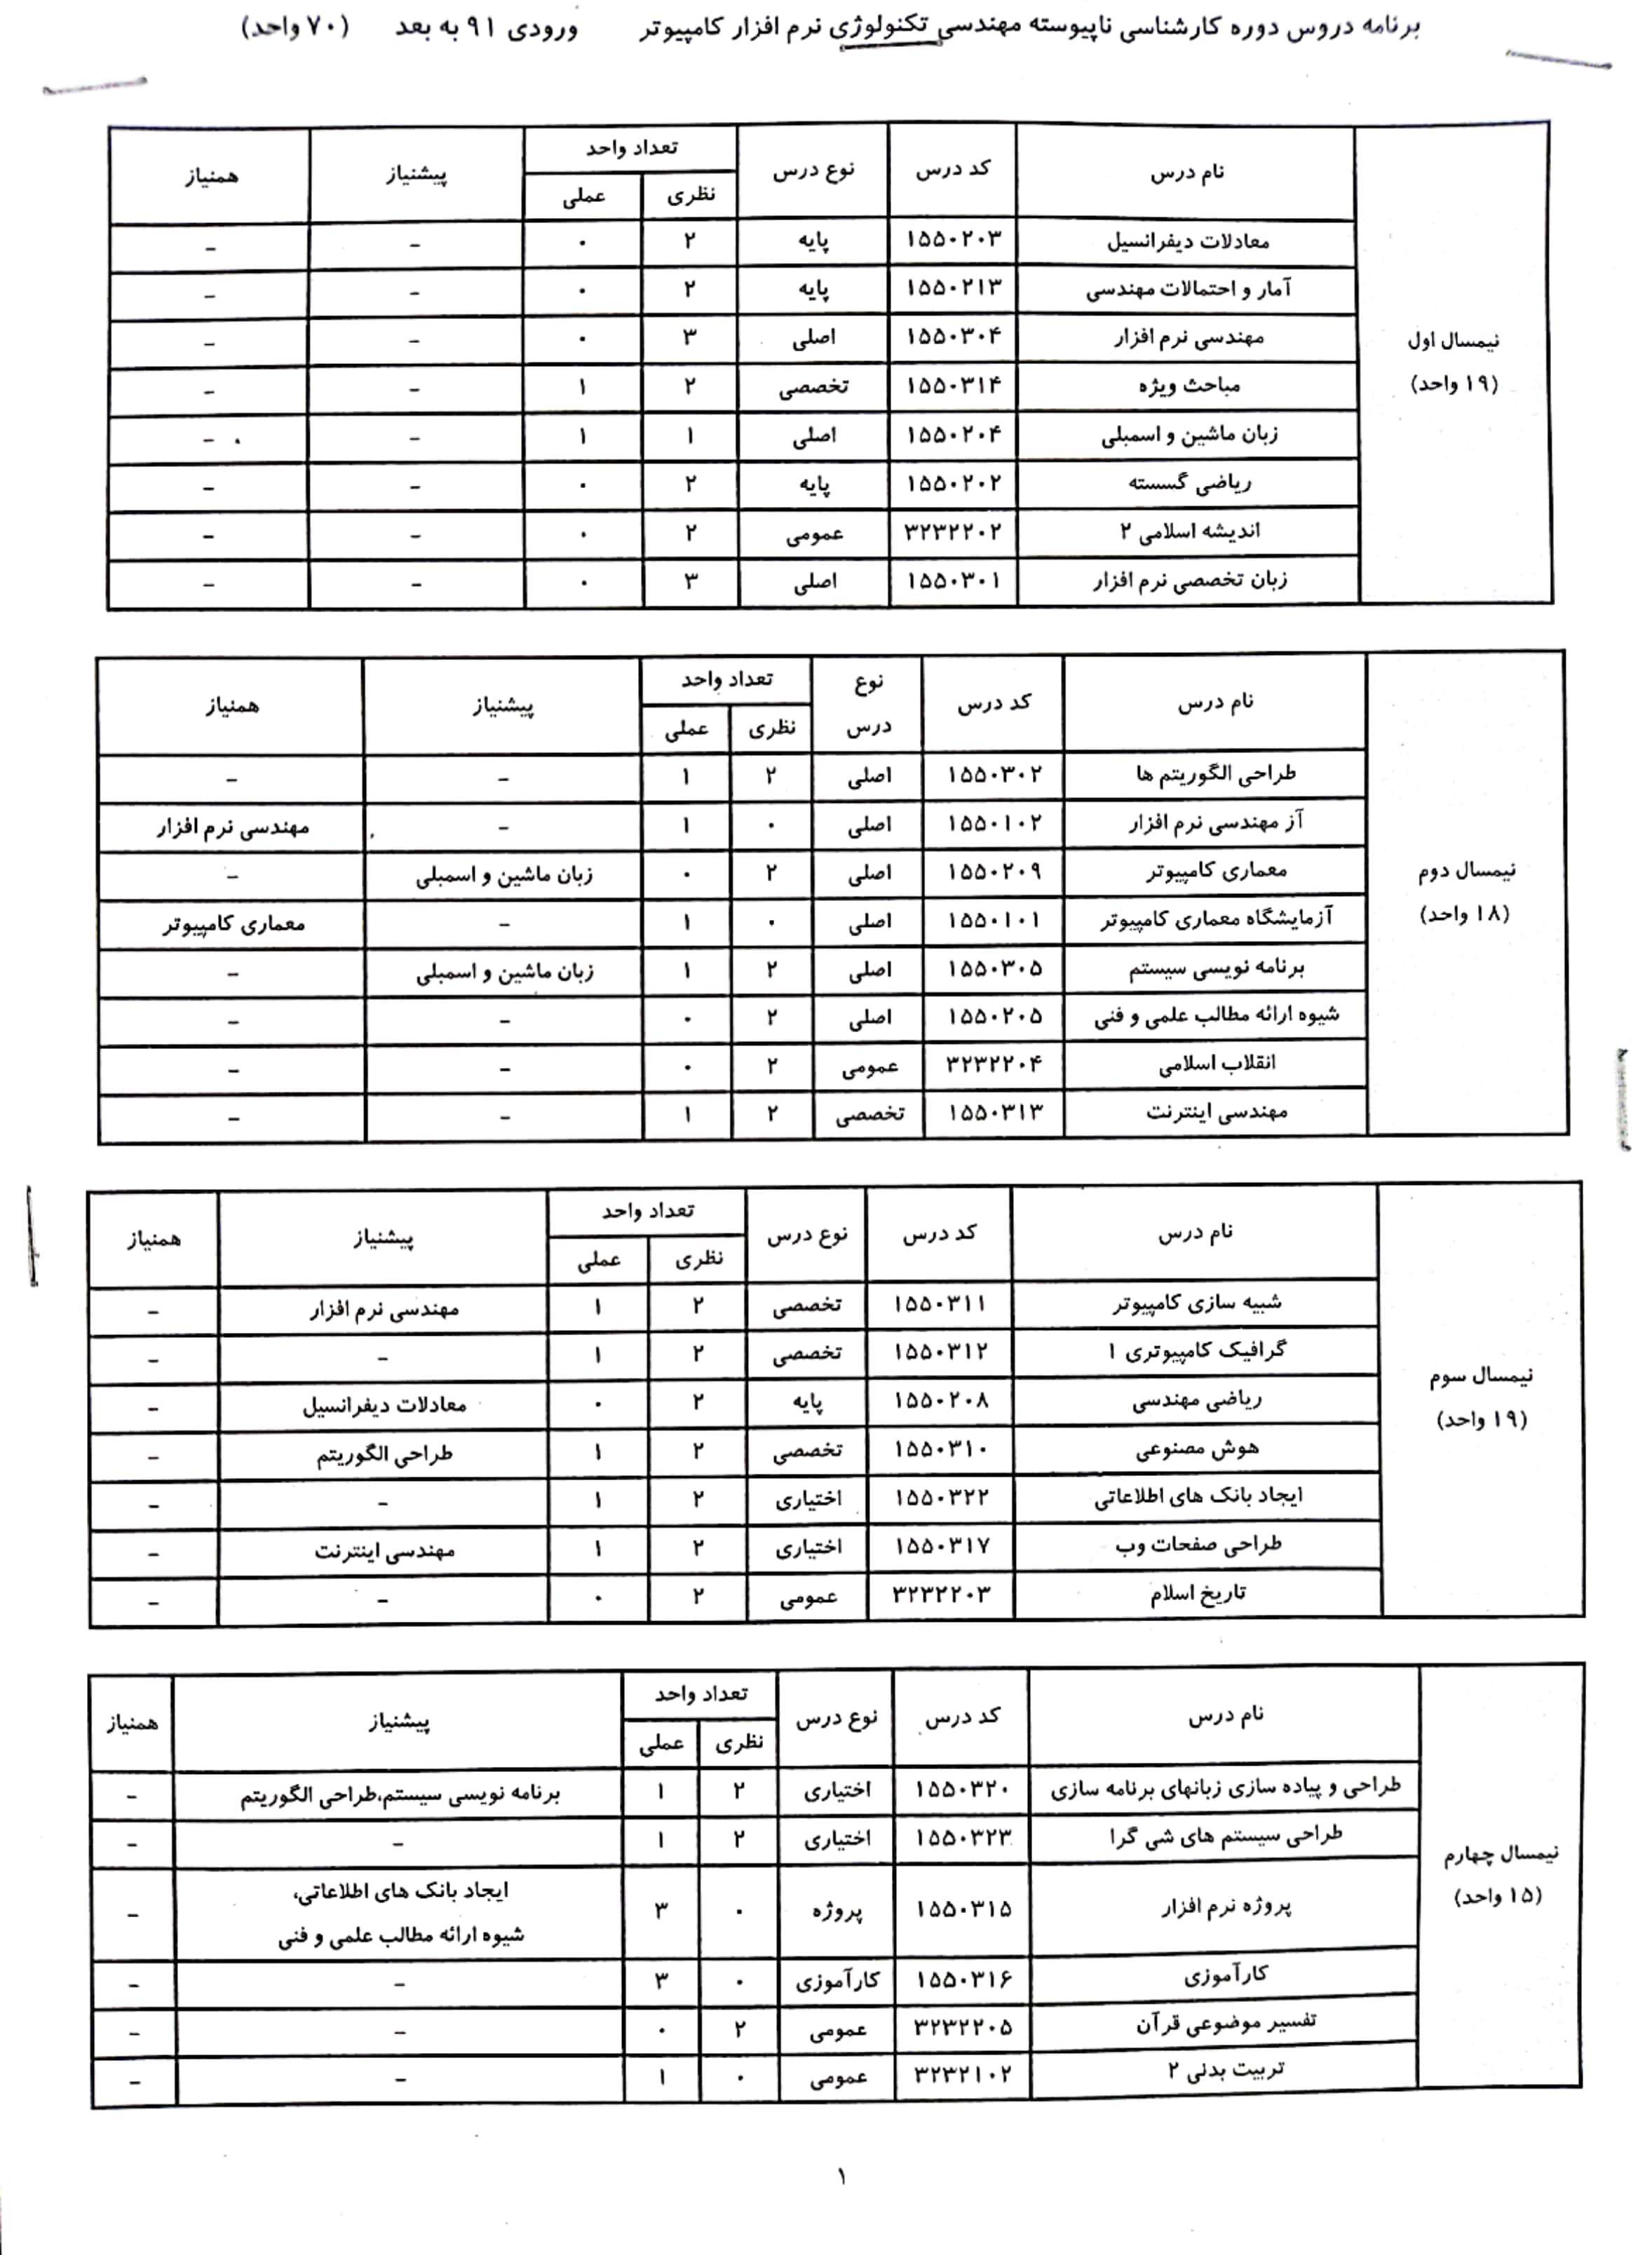 برنامه دروس دوره کارشناسی ناپیوسته مهندسی تکنولوژی نرم افزار کامپیوتر ورودی ۹۱ به بعد (۷۰ واحد)
نیمسال اول
(۱۹ واحد)
نام درس کد درس نوع درس تعداد واحد پیشنیاز همنیاز
نظری عملی
معادلات دیفرانسیل ۱۵۵۰۲۰۳ پایه ۲ ۰ - -
آمار و احتمالات مهندسی ۱۵۵۰۲۱۳ پایه ۲ ۰ - -
مهندسی نرم افزار ۱۵۵۰۳۰۴ اصلی ۳ ۰ - -
مباحث ویژه ۱۵۵۰۳۱۴ تخصصی ۲ ۱ - -
زبان ماشین و اسمبلی ۱۵۵۰۲۰۴ اصلی ۱ ۱ - -
ریاضی گسسته ۱۵۵۰۲۰۲ پایه ۲ ۰ - -
اندیشه اسلامی ۲ ۳۲۳۲۲۰۲ عمومی ۲ ۰ - -
زبان تخصصی نرم افزار ۱۵۵۰۳۰۱ اصلی ۳ ۰ - -
نیمسال دوم
(۱۸ واحد)
نام درس کد درس نوع درس تعداد واحد پیشنیاز همنیاز
نظری عملی
طراحی الگوریتم ها ۱۵۵۰۳۰۲ اصلی ۲ ۱ - -
آز مهندسی نرم افزار ۱۵۵۰۱۰۲ اصلی ۰ ۱ - مهندسی نرم افزار
معماری کامپیوتر ۱۵۵۰۲۰۹ اصلی ۲ ۰ زبان ماشین و اسمبلی -
آزمایشگاه معماری کامپیوتر ۱۵۵۰۱۰۱ اصلی ۰ ۱ - معماری کامپیوتر
برنامه نویسی سیستم ۱۵۵۰۳۰۵ اصلی ۲ ۱ زبان ماشین و اسمبلی -
شیوه ارائه مطالب علمی و فنی ۱۵۵۰۲۰۵ اصلی ۲ ۰ - -
انقلاب اسلامی ۳۲۳۲۲۰۴ عمومی ۲ ۰ - -
مهندسی اینترنت ۱۵۵۰۳۱۳ تخصصی ۲ ۱ - -
نیمسال سوم
(۱۹ واحد)
نام درس کد درس نوع درس تعداد واحد پیشنیاز همنیاز
نظری عملی
شبیه سازی کامپیوتر ۱۵۵۰۳۱۱ تخصصی ۲ ۱ مهندسی نرم افزار -
گرافیک کامپیوتری ۱ ۱۵۵۰۳۱۲ تخصصی ۲ ۱ - -
ریاضی مهندسی ۱۵۵۰۲۰۸ پایه ۲ ۰ معادلات دیفرانسیل -
هوش مصنوعی ۱۵۵۰۳۱۰ تخصصی ۲ ۱ طراحی الگوریتم -
ایجاد بانک های اطلاعاتی ۱۵۵۰۳۲۲ اختیاری ۲ ۱ - -
طراحی صفحات وب ۱۵۵۰۳۱۷ اختیاری ۲ ۱ مهندسی اینترنت -
تاریخ اسلام ۳۲۳۲۲۰۳ عمومی ۲ ۰ - -
نیمسال چهارم
(۱۵ واحد)
نام درس کد درس نوع درس تعداد واحد پیشنیاز همنیاز
نظری عملی
طراحی و پیاده سازی زبانهای برنامه سازی ۱۵۵۰۳۲۰ اختیاری ۲ ۱ برنامه نویسی سیستم،طراحی الگوریتم -
طراحی سیستم های شی گرا ۱۵۵۰۳۲۳ اختیاری ۲ ۱ - -
پروژه نرم افزار ۱۵۵۰۳۱۵ پروژه ۰ ۳ ایجاد بانک های اطلاعاتی، -
شیوه ارائه مطالب علمی و فنی
کارآموزی ۱۵۵۰۳۱۶ کارآموزی ۰ ۳ - -
تفسیر موضوعی قرآن ۳۲۳۲۲۰۵ عمومی ۲ ۰ - -
تربیت بدنی ۲ ۳۲۳۲۱۰۲ عمومی ۰ ۱ - -
۱